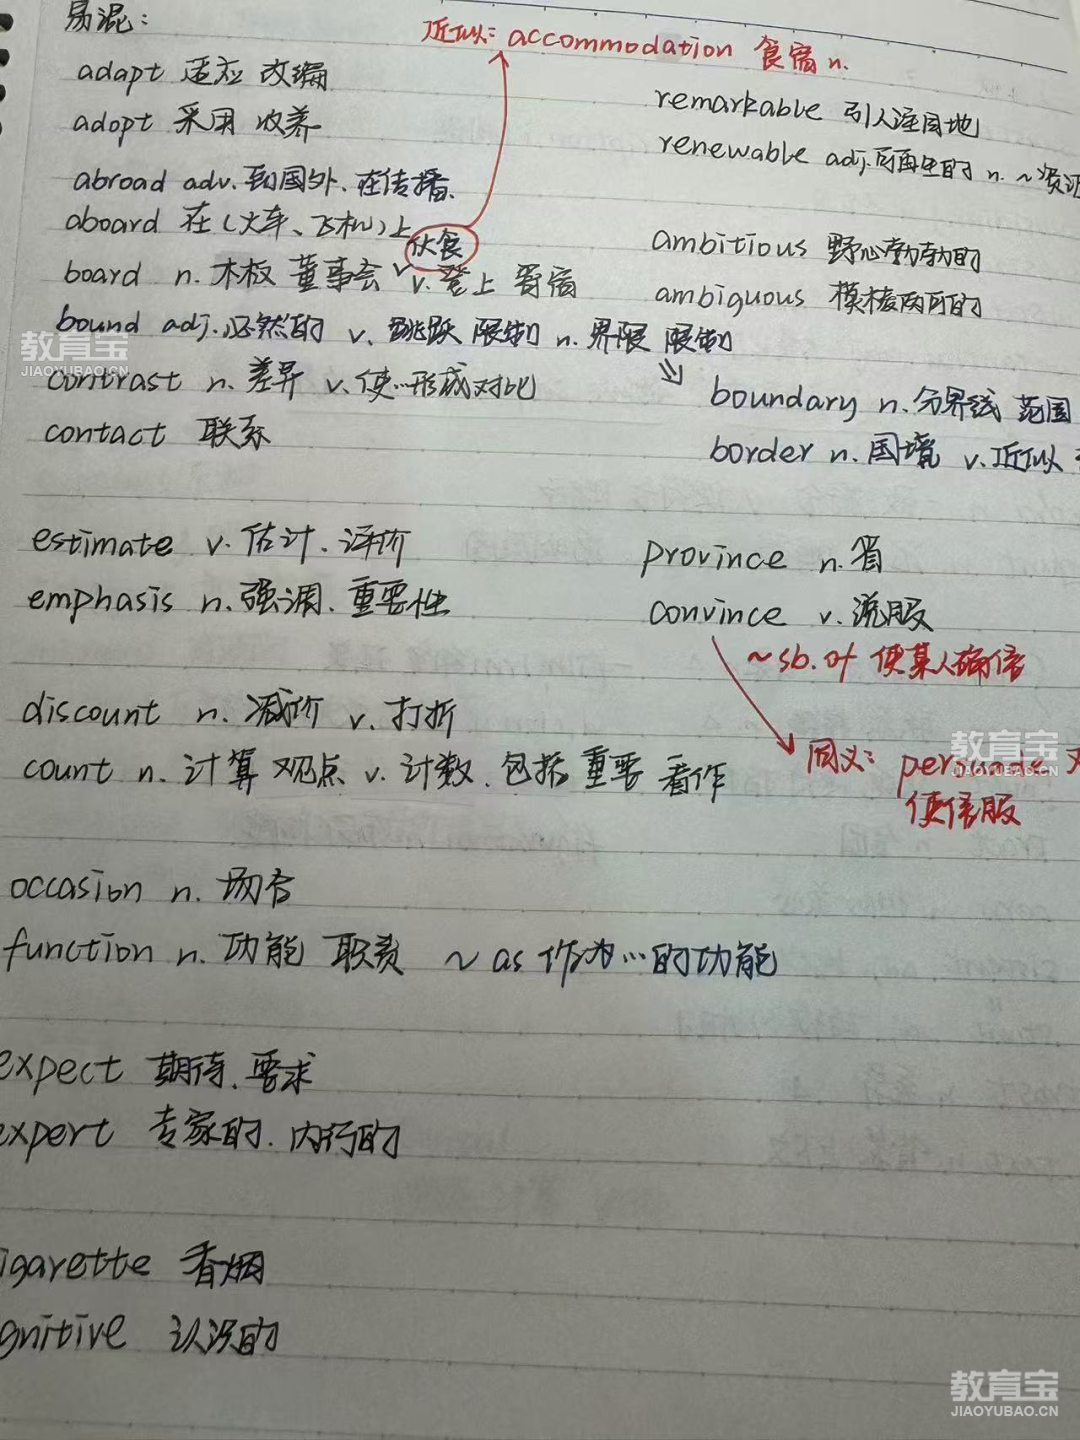 易混：
近似：accommodation 食宿 n.
adapt 适应 改编
adopt 采用 收养
remarkable 引人注目地
renewable adj.可再生的 n. ~资源
abroad adv.到国外、在传播.
aboard 在(火车、飞机)上
伙食
board n. 木板 董事会 v.登上 寄宿
ambitious 野心勃勃的
ambiguous 模棱两可的
bound adj.必然的 v. 跳跃 限制 n.界限 限制
contrast n.差异 v.使…形成对比
boundary n.分界线 范围
contact 联系
border n.国境 v.近似
estimate v.估计.评价
province n.省
emphasis n.强调、重要性
convince v.说服
~sb. of 使某人确信
discount n.减价 v.打折
同义：persuade
使信服
count n.计算 观点 v.计数.包括 重要 看作
occasion n.场合
function n.功能 职责 ~as 作为…的功能
expect 期待.要求
expert 专家的.内行的
igarette 香烟
gnitive 认识的
教育宝
JIAOYUBAO.CN
教育宝
JIAOYUBAO.CN
教育宝
JIAOYUBAO.CN